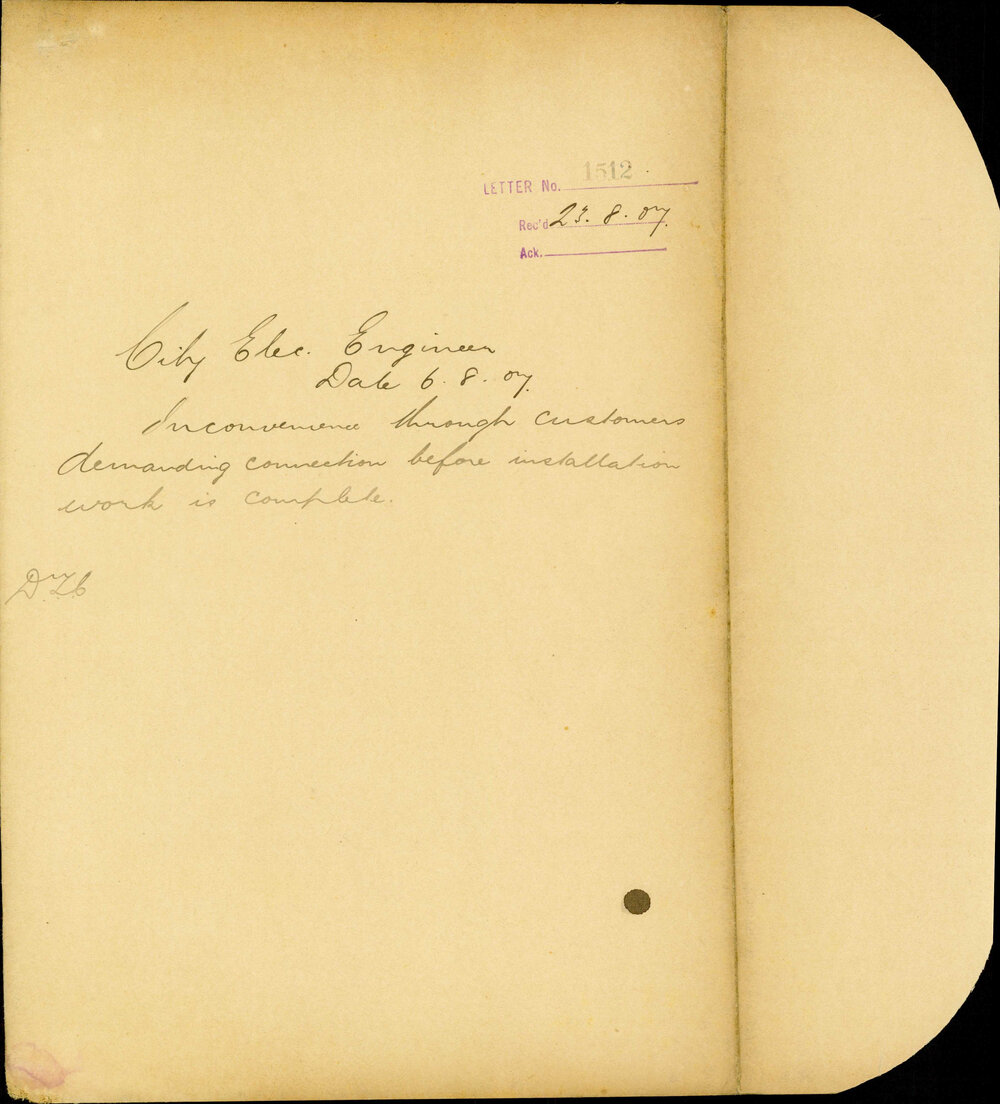 LETTER No. 1512
Rec'd 23. 8. 07.
Ack.
City Elec. Engineer
Date 6. 8. 07.
Inconvenience through customers
demanding connection before installation
work is complete.